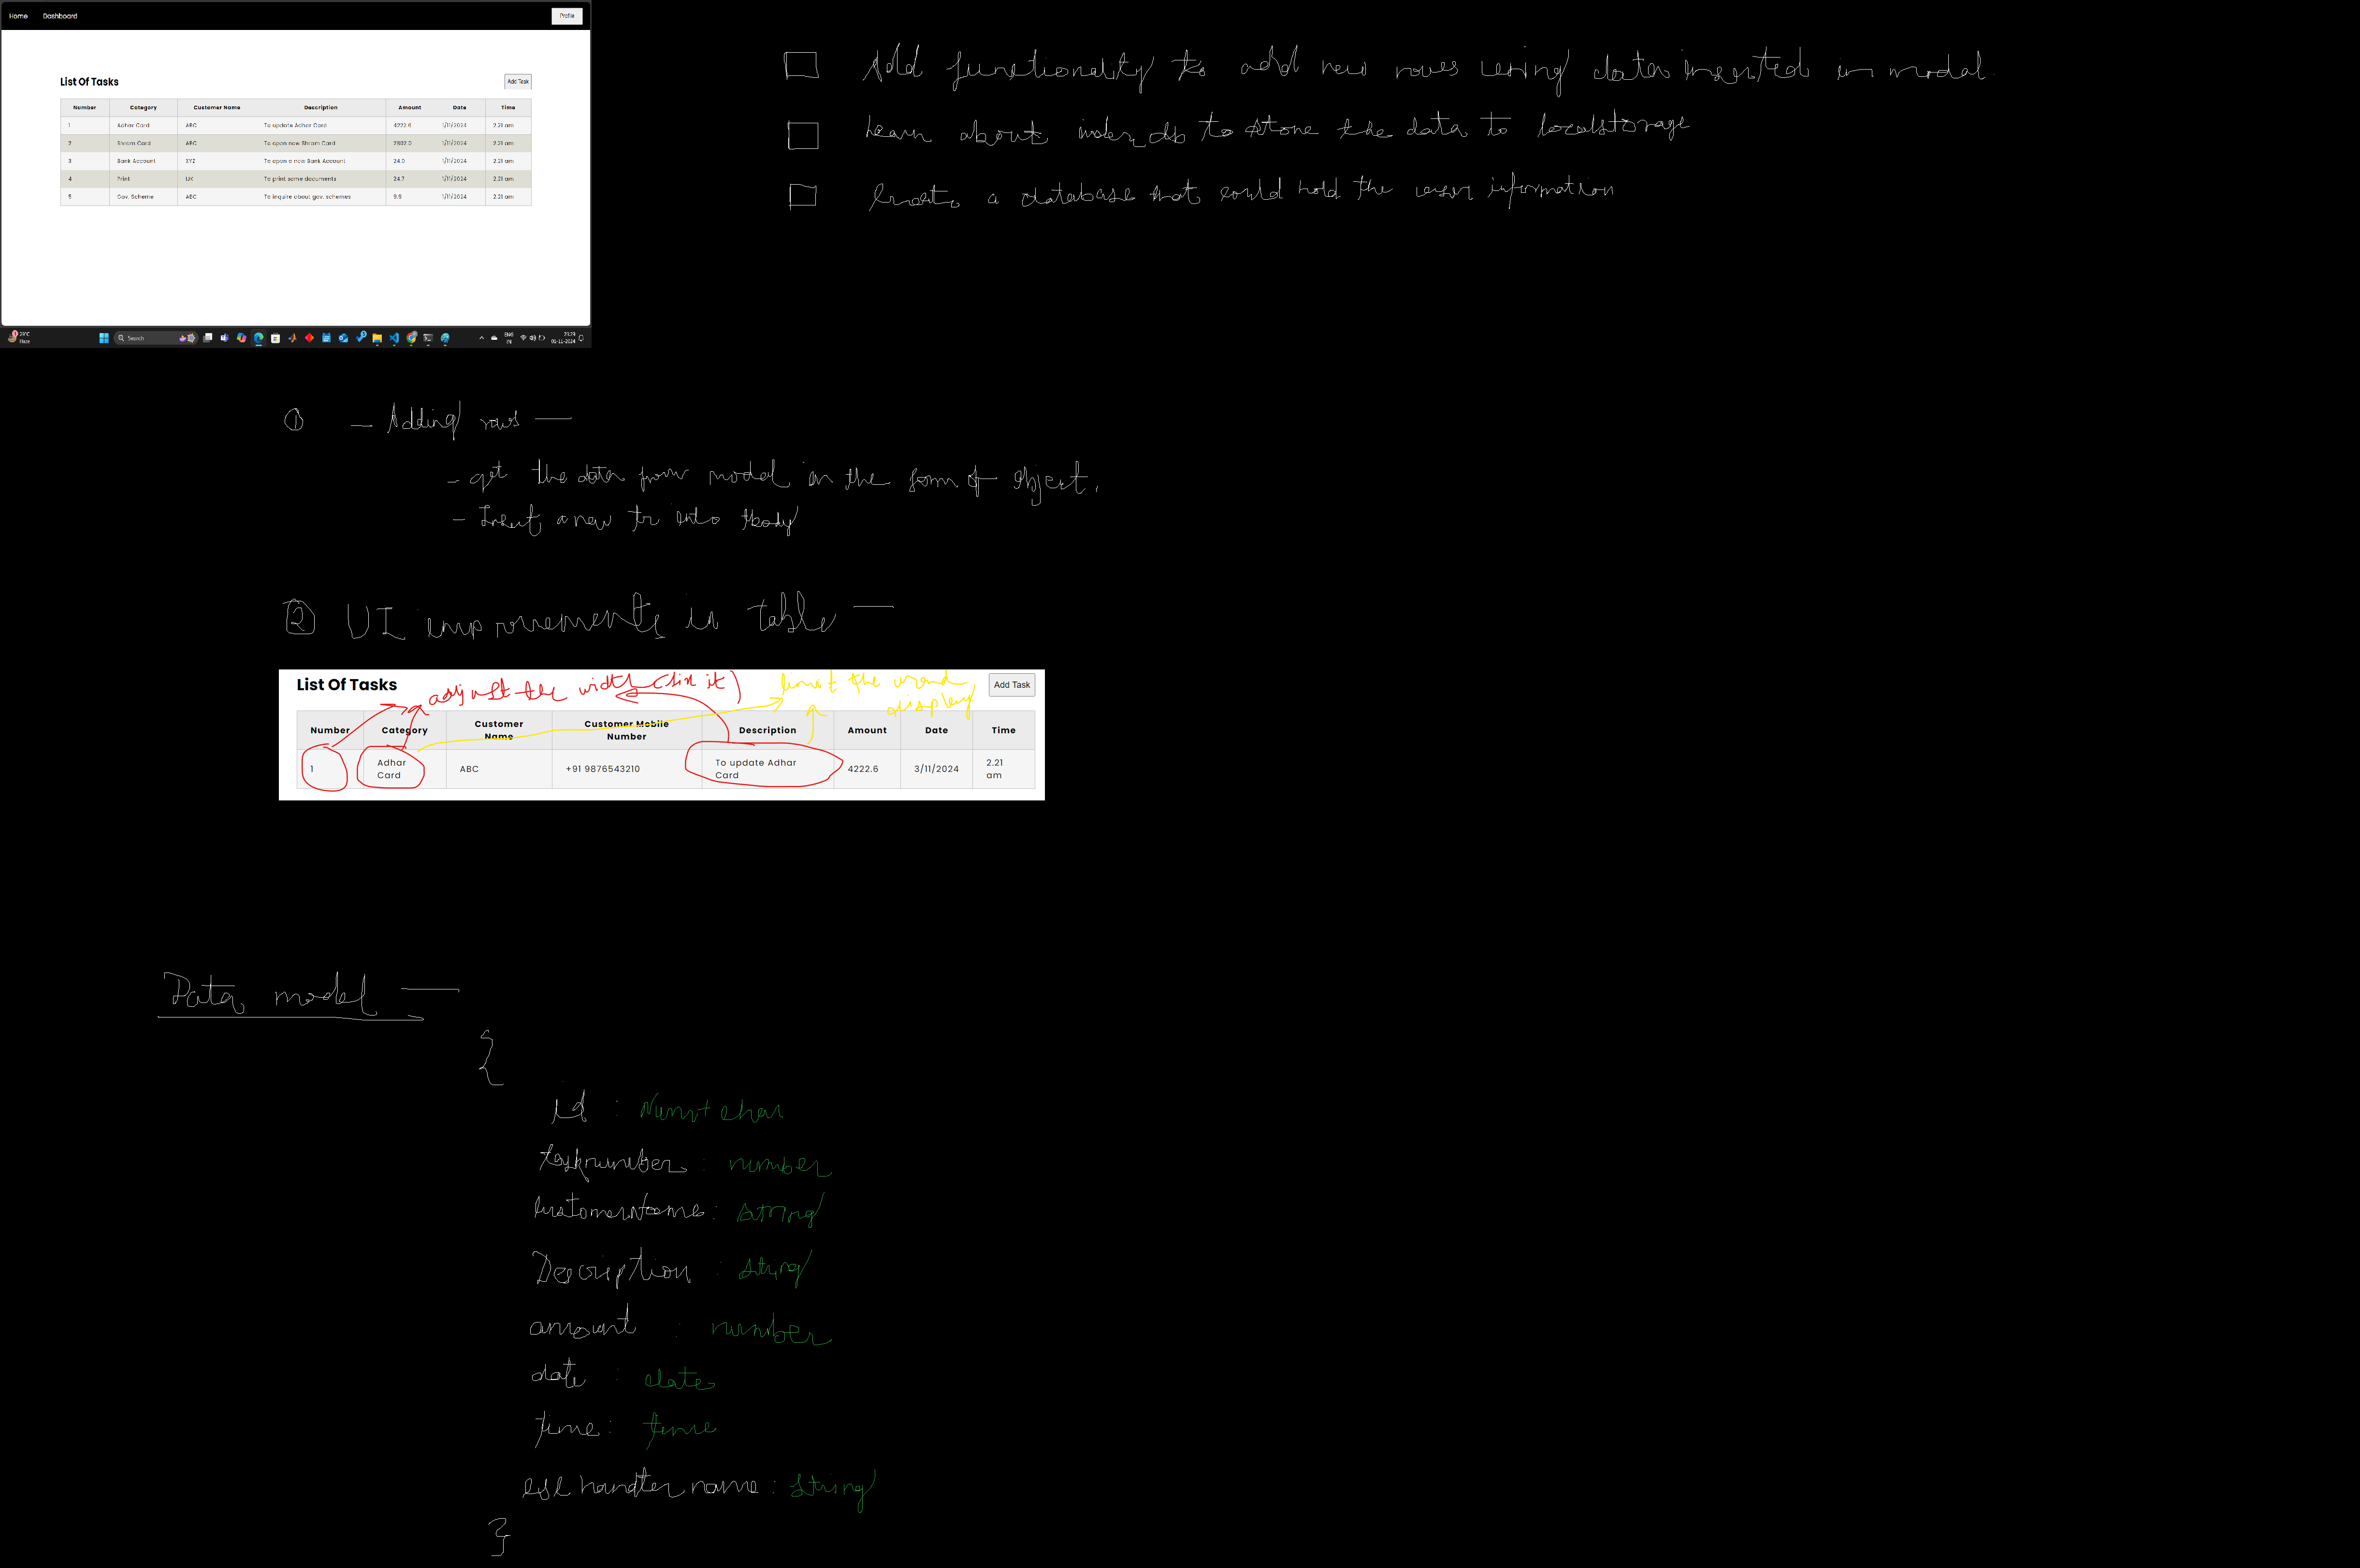 Home Dashboard Profile
List Of Tasks Add Task
Number Category Customer Name Description Amount Date Time
1 Adhar Card ABC To update Adhar Card 4222.6 1/11/2024 2.21 am
2 Shram Card ABC To open new Shram Card 1/11/2024 2.21 am
3 Bank Account XYZ To open a new Bank Account 24.0 1/11/2024 2.21 am
4 Print To print some documents 24.7 1/11/2024 2.21 am
5 Gov. Scheme ABC To inquire about gov. schemes 9.9 1/11/2024 2.21 am
Search
ENG
IN
23:23
01-11-2024
Add functionality to add new rows using data inserted in modal
Learn about index db to store the data to localstorage
Create a database that could hold the user information
① — Adding rows —
- get the data from modal in the form of object.
- Insert a new tr into tbody
2 UI improvements in table —
List Of Tasks adjust the width (fix it) limit the word display Add Task
Number Category Customer Name Customer Mobile Number Description Amount Date Time
1 Adhar Card ABC +91 9876543210 To update Adhar Card 4222.6 3/11/2024 2.21 am
Data model —
{
id : Num + char
tasknumber : number
CustomerName : string
Description : string
amount : number
date : date
time : time
handler name : string
}